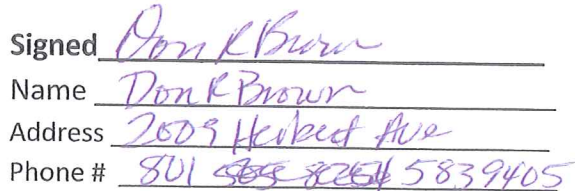 Signed Don R Brown
Name Don R Brown
Address 2009 Herbert Ave
Phone # 801 5839405